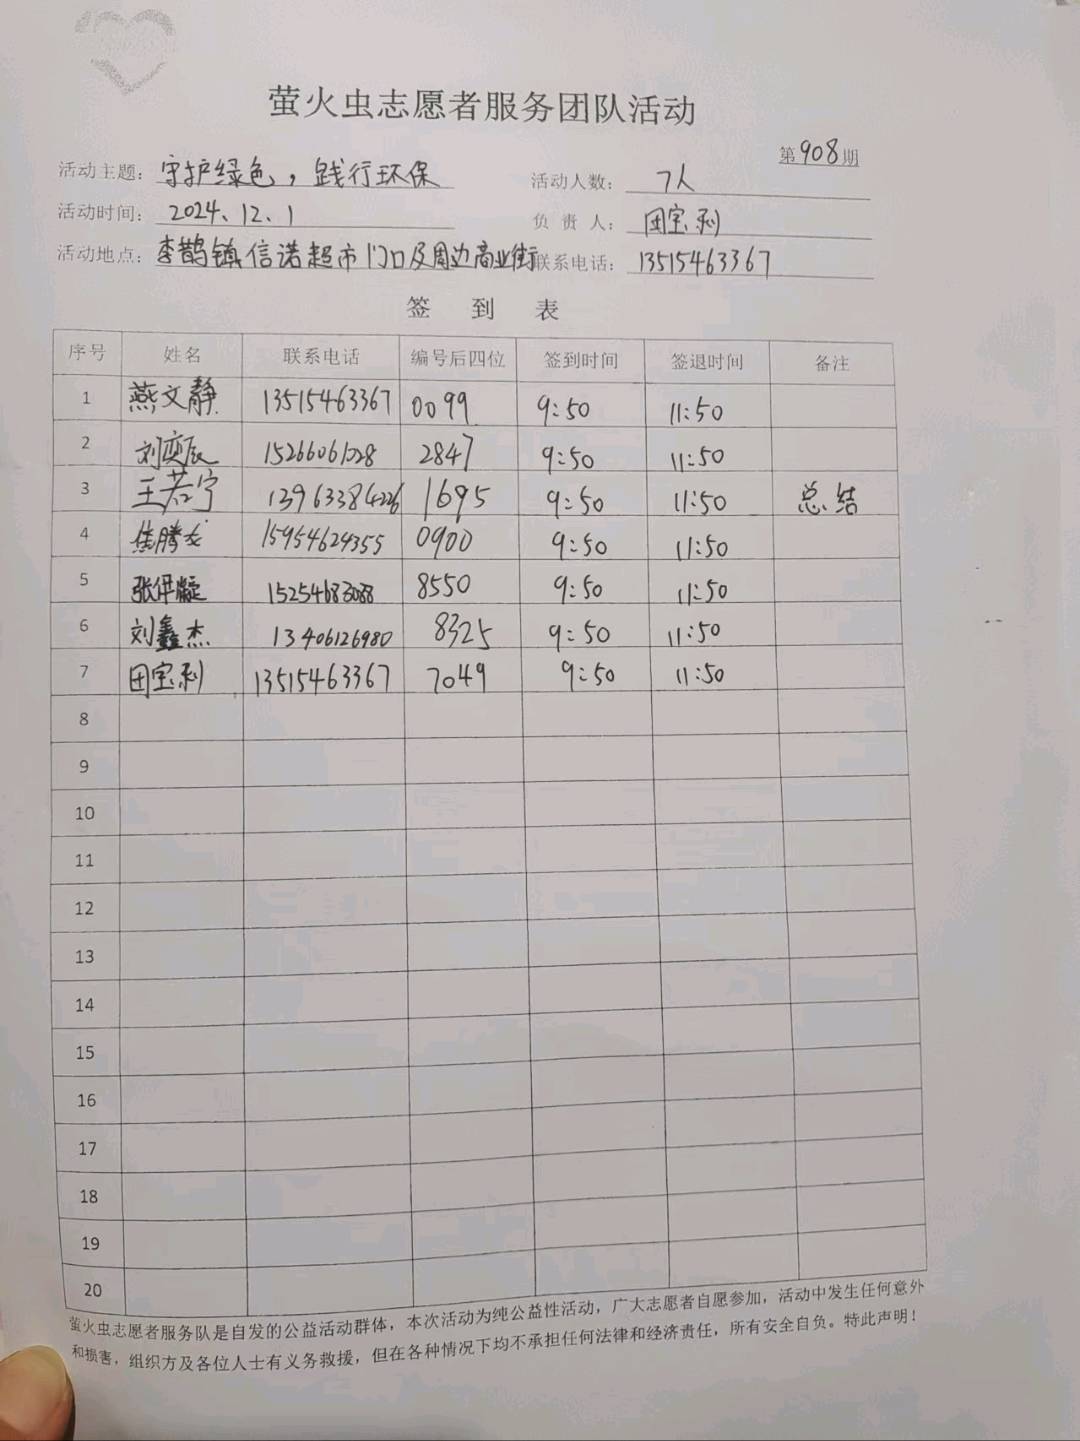 萤火虫志愿者服务团队活动
第908期
活动主题：守护绿色，践行环保 活动人数：7人
活动时间：2024.12.1 负责人：田宝利
活动地点：李鹊镇信诺超市门口及周边商业街 联系电话：13515463367
签到表
序号 姓名 联系电话 编号后四位 签到时间 签退时间 备注
1 燕文静 13515463367 0099 9:50 11:50
2 刘奕辰 15266061028 2847 9:50 11:50
3 王若宁 13963384226 1695 9:50 11:50 总结
4 焦腾 15954624355 0900 9:50 11:50
5 张伊凝 15254683088 8550 9:50 11:50
6 刘鑫杰 13406126980 8325 9:50 11:50
7 田宝利 13515463367 7049 9:50 11:50
8
9
10
11
12
13
14
15
16
17
18
19
20
萤火虫志愿者服务队是自发的公益活动群体，本次活动为纯公益性活动，广大志愿者自愿参加，活动中发生任何意外
和损害，组织方及各位人士有义务救援，但在各种情况下均不承担任何法律和经济责任，所有安全自负。特此声明！